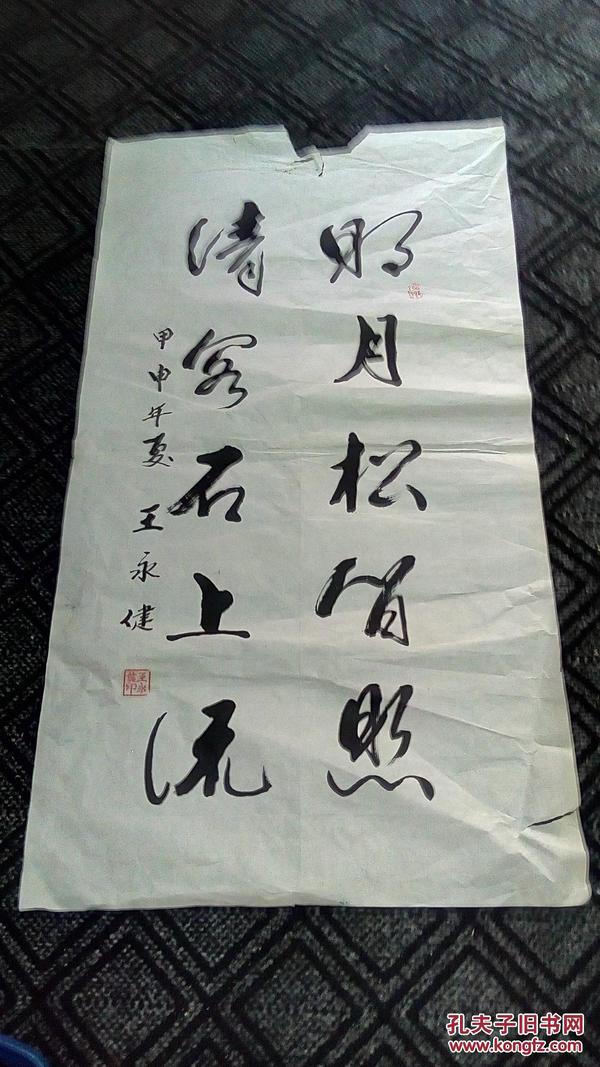 明月松间照
清泉石上流
甲申年夏 王永健
王永健印
孔夫子旧书网
www.kongfz.com